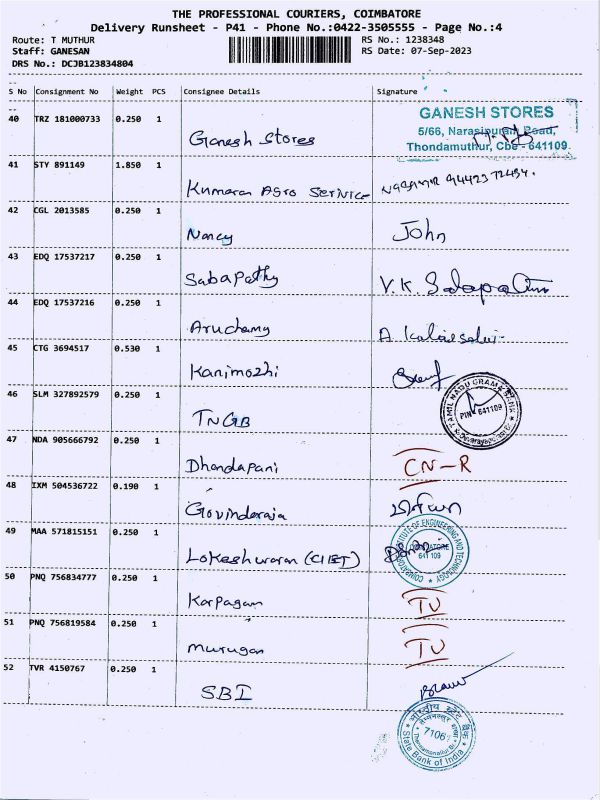 THE PROFESSIONAL COURIERS, COIMBATORE
Delivery Runsheet - P41 - Phone No.:0422-3505555 - Page No.:4
Route: T MUTHUR RS No.: 1238348
Staff: GANESAN RS Date: 07-Sep-2023
DRS No.: DCJB123834804
S No Consignment No Weight PCS Consignee Details Signature
40 TRZ 181000733 0.250 1 Ganesh Stores
GANESH STORES
5/66, Narasipuram Road,
Thondamuthur, Cbe - 641109
41 STY 891149 1.850 1 Kumaran Agro Service 94423 72494.
42 CGL 2013585 0.250 1 Nancy John
43 EDQ 17537217 0.250 1 Sabapathy V.K.
44 EDQ 17537216 0.250 1 Aruchamy A Kalaiselvi
45 CTG 3694517 0.530 1 Kanimozhi
46 SLM 327892579 0.250 1 TNGB
TAMIL NADU GRAMA BANK
PIN 641109
47 NDA 905666792 0.250 1 Dhandapani CN-R
48 IXM 504536722 0.190 1 Govindaraja
49 MAA 571815151 0.250 1 Lokeshwaran (CIET)
COIMBATORE INSTITUTE OF ENGINEERING AND TECHNOLOGY
COIMBATORE
641 109
50 PNQ 756834777 0.250 1 Karpagam TU
51 PNQ 756819584 0.250 1 Murugan TU
52 TVR 4150767 0.250 1 SBI
भारतीय स्टेट बैंक
State Bank of India